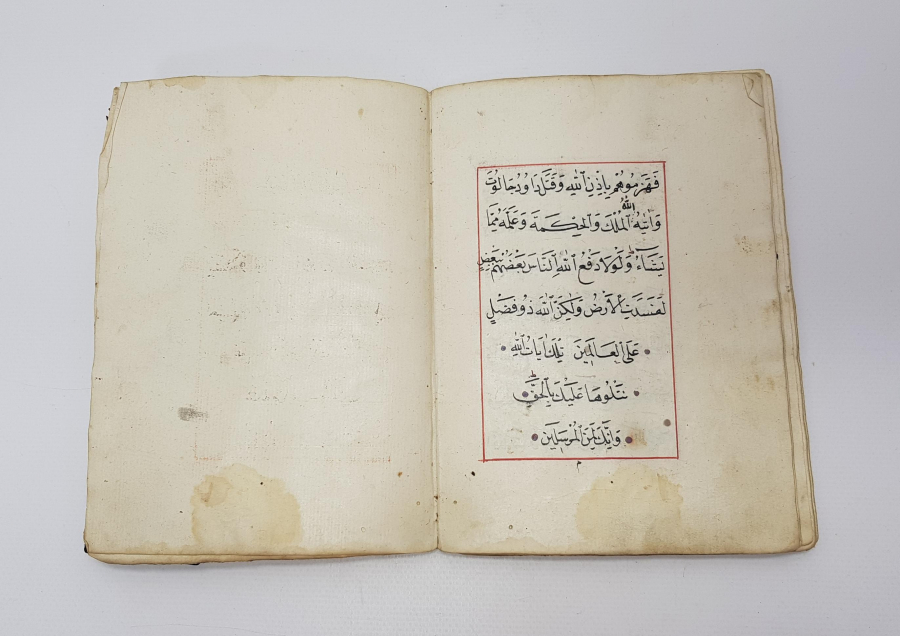 فَهَزَمُوهُم بِإِذْنِ ٱللَّهِ وَقَتَلَ دَاوُدُ جَالُوتَ
وَءَاتَٰهُ ٱللَّهُ ٱلْمُلْكَ وَٱلْحِكْمَةَ وَعَلَّمَهُ مِمَّا
يَشَآءُ وَلَوْلَا دَفْعُ ٱللَّهِ ٱلنَّاسَ بَعْضَهُم بِبَعْضٍ
لَفَسَدَتِ ٱلْأَرْضُ وَلَٰكِنَّ ٱللَّهَ ذُو فَضْلٍ
عَلَى ٱلْعَالَمِينَ تِلْكَ ءَايَاتُ ٱللَّهِ
نَتْلُوهَا عَلَيْكَ بِٱلْحَقِّ
وَإِنَّكَ لَمِنَ ٱلْمُرْسَلِينَ
م